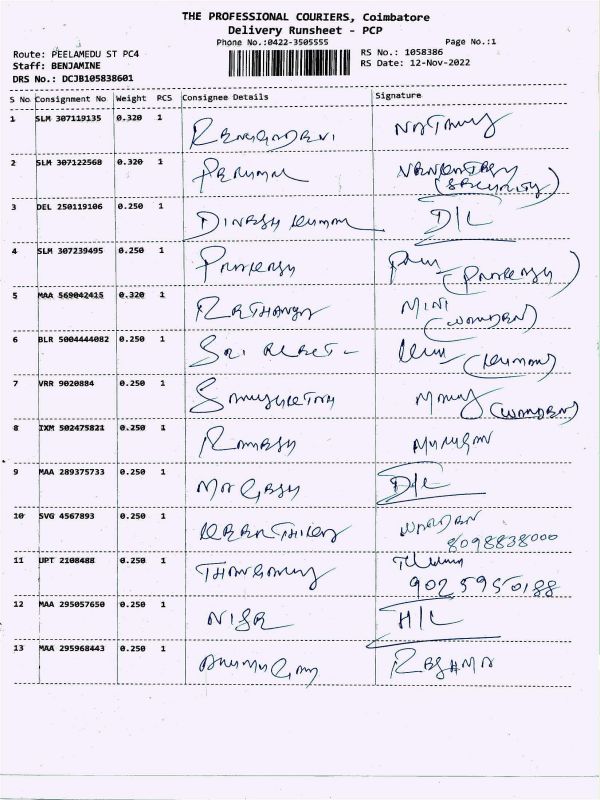 THE PROFESSIONAL COURIERS, Coimbatore
Delivery Runsheet - PCP
Phone No.:0422-3505555 Page No.:1
Route: PEELAMEDU ST PC4 RS No.: 1058386
Staff: BENJAMINE RS Date: 12-Nov-2022
DRS No.: DCJB105838601
S No Consignment No Weight PCS Consignee Details Signature
1 SLM 307119135 0.320 1
2 SLM 307122568 0.320 1 PERUMAL
(SECURITY)
3 DEL 250119106 0.250 1 DINESH KUMAR D/L
4 SLM 307239495 0.250 1
5 MAA 569042415 0.320 1 MINI
(WARDEN)
6 BLR 5004444082 0.250 1 SRI
7 VRR 9020884 0.250 1 (WARDEN)
8 IXM 502475821 0.250 1 RAMESH MURUGAN
9 MAA 289375733 0.250 1 D/L
10 SVG 4567893 0.250 1 WARDEN
8098838000
11 UPT 2108488 0.250 1
9025950188
12 MAA 295057650 0.250 1 NISR H/L
13 MAA 295968443 0.250 1 RESHMA